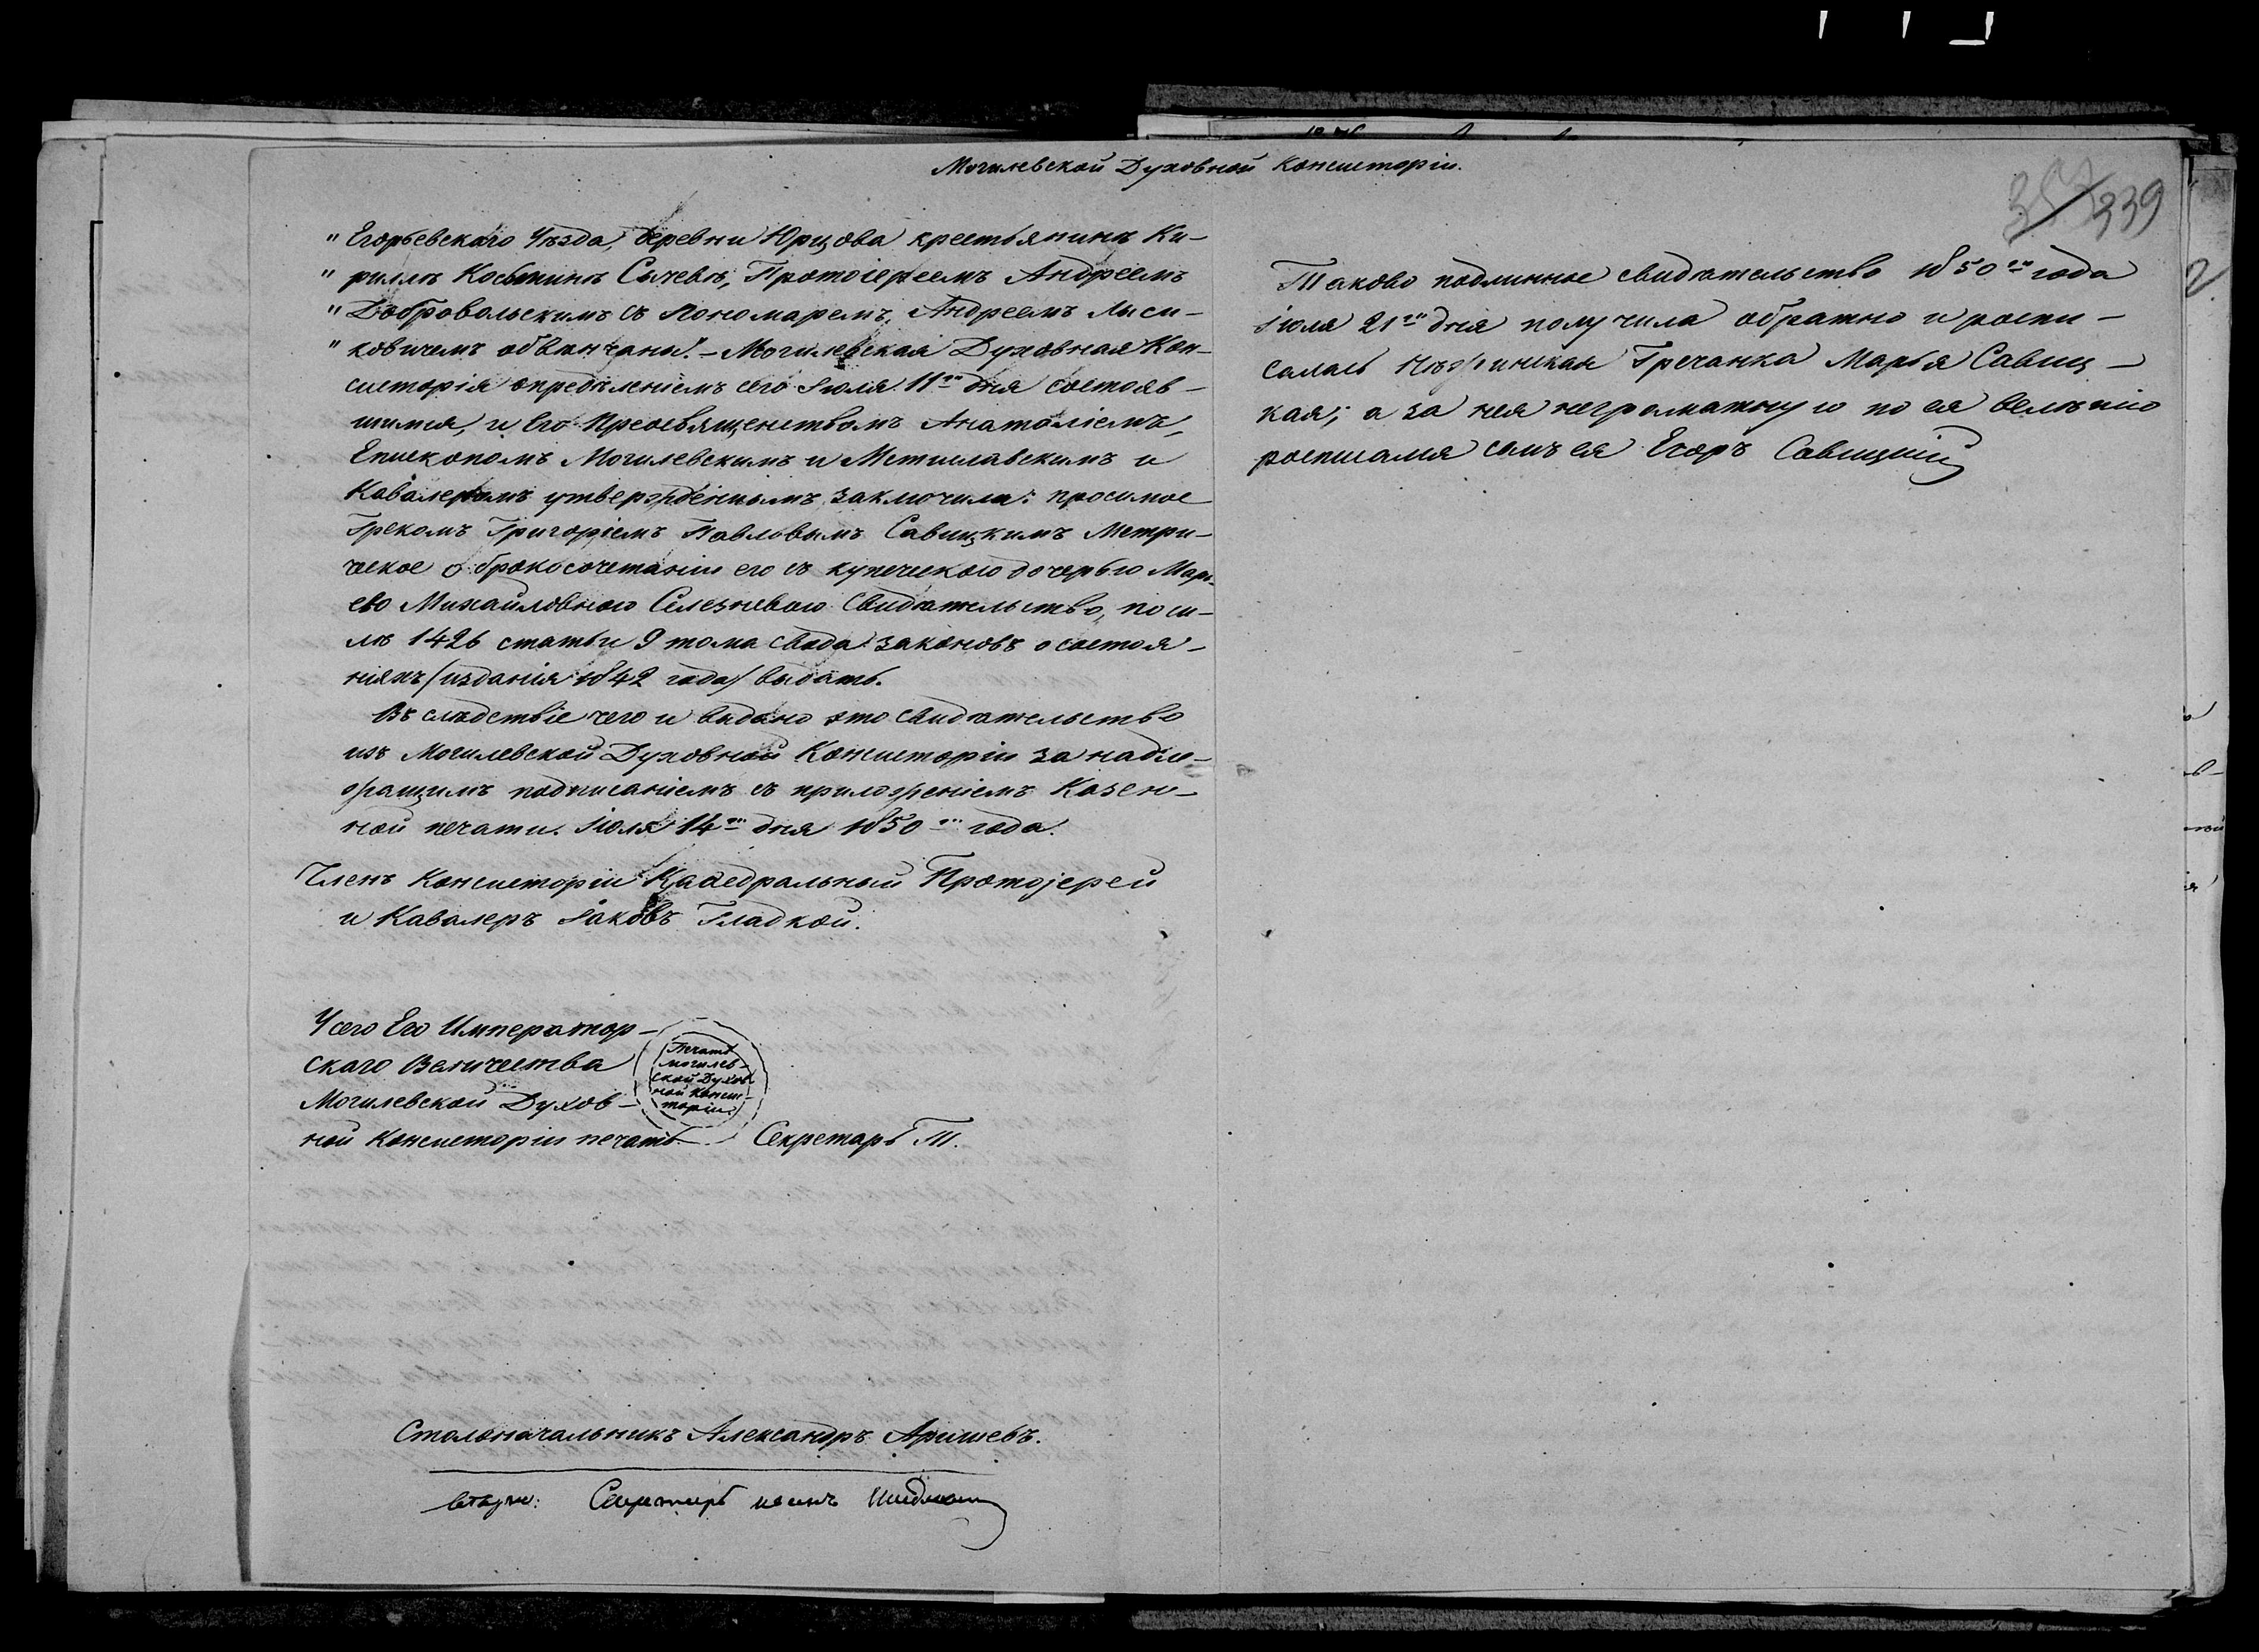 Могилевской Духовной Консисторіи.
339
" Егорьевскаго Уѣзда, деревни Юрцова крестьянинъ Ки-
" риллъ Косьминъ Сычевъ, Протоіереемъ Андреемъ
" Добровольскимъ съ Пономаремъ Андреемъ Лыси-
" ковичемъ обвѣнчаны". - Могилевская Духовная Кон-
систорія опредѣленіемъ сего Іюля 11го дня состояв-
шимся, и Его Преосвященствомъ Анатоліемъ,
Епископомъ Могилевскимъ и Мстиславскимъ и
Кавалеромъ утвержденнымъ заключила: просимое
Грекомъ Григоріемъ Павловымъ Савицкимъ Метри-
ческое о бракосочетаніи его съ купеческою дочерью Марь-
ею Михайловною Селезневою Свидѣтельство, по си-
лѣ 1426 статьи 9 тома свода законовъ о состоя-
ніяхъ (изданія 1842 года) выдать.
Въ слѣдствіе чего и выдано это свидѣтельство
изъ Могилевской Духовной Консисторіи за надле-
жащимъ подписаніемъ съ приложеніемъ Казен-
ной печати. Іюля 14го дня 1850го года.
Членъ Консисторіи Каѳедральный Протоjерей
и Кавалеръ Іаковъ Гладкой.
У сего Его Император-
скаго Величества
Могилевской Духов-
ной Консисторіи печать.
Печать
Могилев-
ской Духов
ной Консис-
торіи
Секретарь Т.
Столоначальникъ Александръ Аришевъ.
Секретарь
Таково подлинное свидѣтельство 1850го года
Іюля 21го дня получила обратно и роспи-
салась Нѣжинская Гречанка Марья Савиц-
кая; а за нея неграматную по ея велѣнію
росписался сынъ ея Егоръ Савицкій